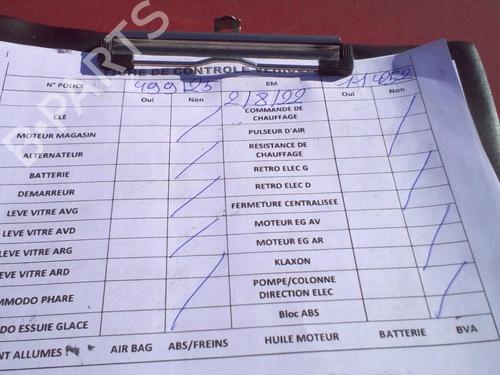 FICHE DE CONTROLE VEHICULE
N° POLICE 499 25 KM 11452
Oui Non 2/8/22 Oui Non
CLE COMMANDE DE CHAUFFAGE
MOTEUR MAGASIN PULSEUR D'AIR
ALTERNATEUR RESISTANCE DE CHAUFFAGE
BATTERIE RETRO ELEC G
DEMARREUR RETRO ELEC D
LEVE VITRE AVG FERMETURE CENTRALISEE
LEVE VITRE AVD MOTEUR EG AV
LEVE VITRE ARG MOTEUR EG AR
LEVE VITRE ARD KLAXON
MMODO PHARE POMPE/COLONNE DIRECTION ELEC
DO ESSUIE GLACE Bloc ABS
NT ALLUMES : AIR BAG ABS/FREINS HUILE MOTEUR BATTERIE BVA
B-PARTS